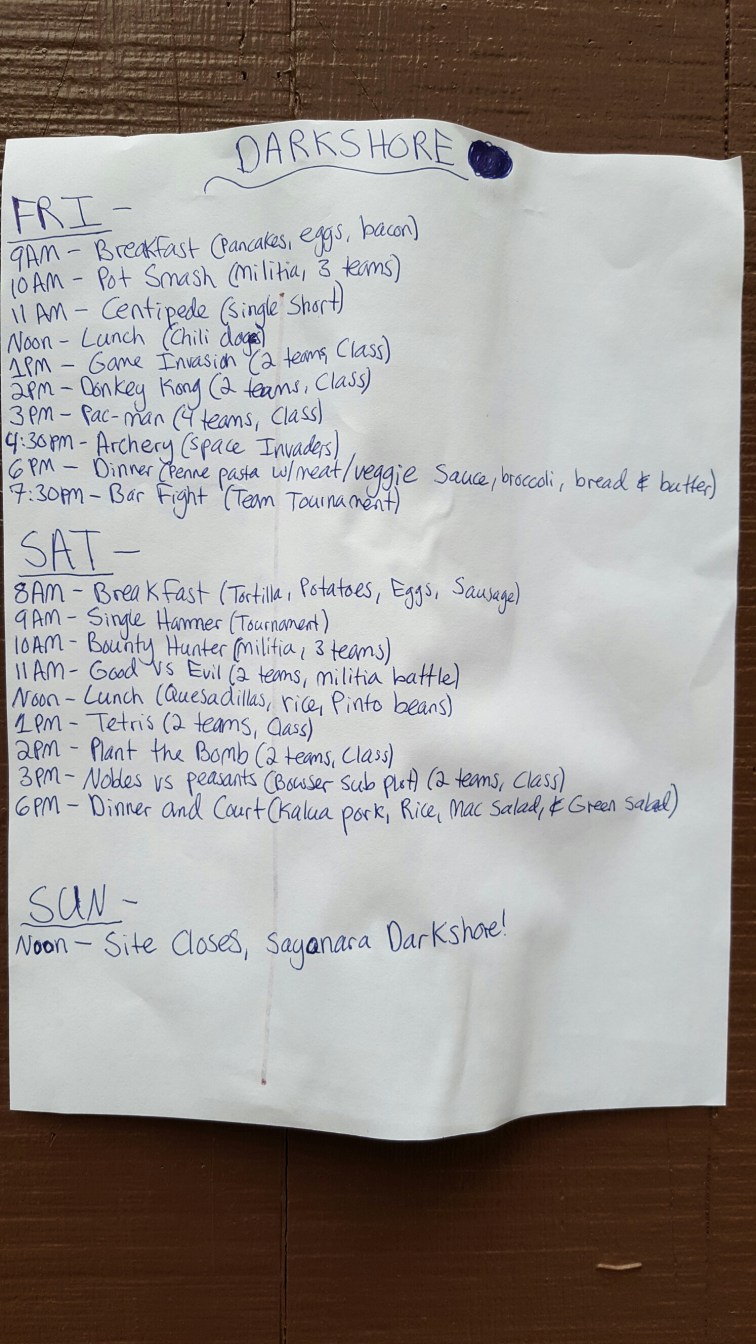 DARKSHORE
FRI -
9AM - Breakfast (Pancakes, eggs, bacon)
10AM - Pot Smash (militia, 3 teams)
11AM - Centipede (single Short)
Noon - Lunch (Chili dogs)
1PM - Game Invasion (2 teams, Class)
2PM - Donkey Kong (2 teams, Class)
3PM - Pac-man (4 teams, Class)
4:30PM - Archery (Space Invaders)
6PM - Dinner (Penne pasta w/meat/veggie Sauce, broccoli, bread & butter)
7:30PM - Bar Fight (Team Tournament)
SAT -
8AM - Breakfast (Tortilla, Potatoes, Eggs, Sausage)
9AM - Single Hammer (Tournament)
10AM - Bounty Hunter (militia, 3 teams)
11AM - Good vs Evil (2 teams, militia battle)
Noon - Lunch (Quesadillas, rice, Pinto beans)
1PM - Tetris (2 teams, Class)
2PM - Plant the Bomb (2 teams, Class)
3PM - Nobles vs peasants (Bowser sub plot) (2 teams, Class)
6PM - Dinner and Court (Kalua pork, Rice, Mac Salad, & Green Salad)
SUN -
Noon - Site Closes, Sayanara Darkshore!